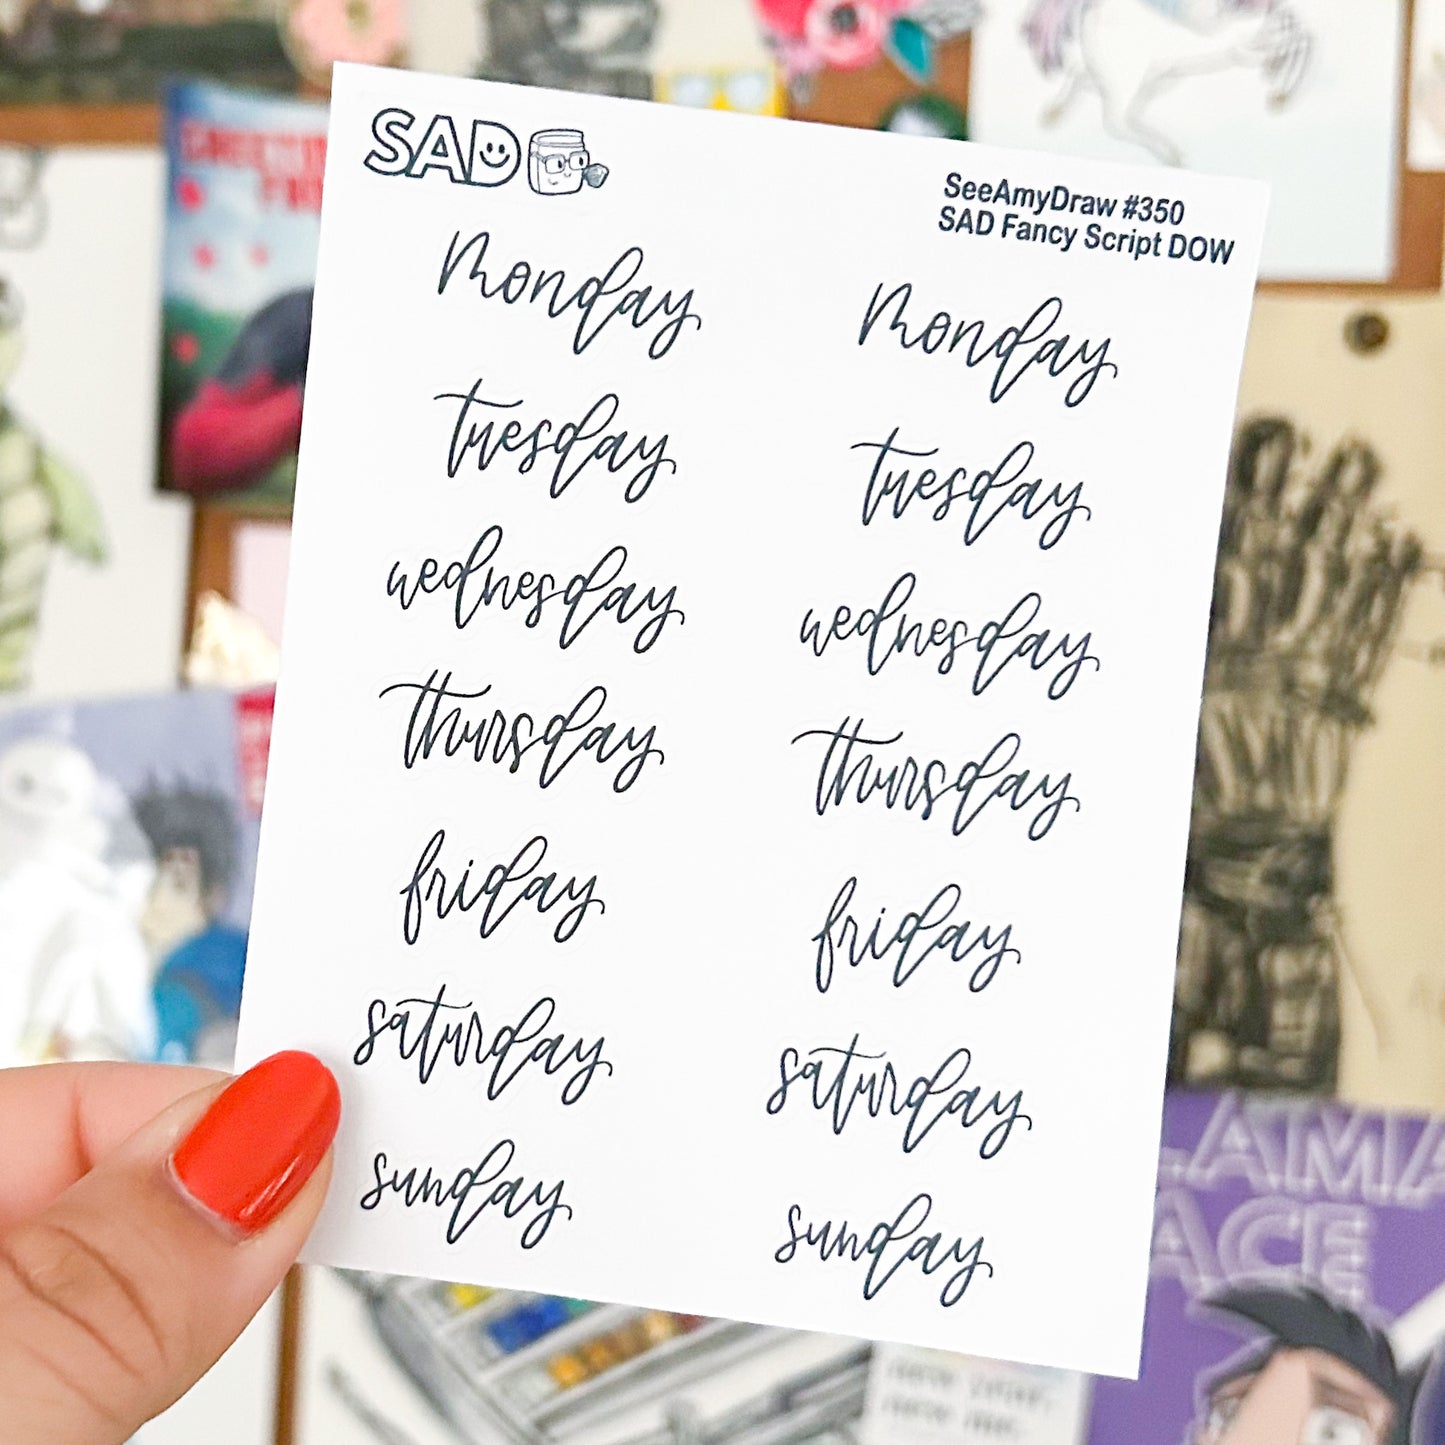 SAD
SeeAmyDraw #350
SAD Fancy Script DOW
monday
tuesday
wednesday
thursday
friday
saturday
sunday
monday
tuesday
wednesday
thursday
friday
saturday
sunday